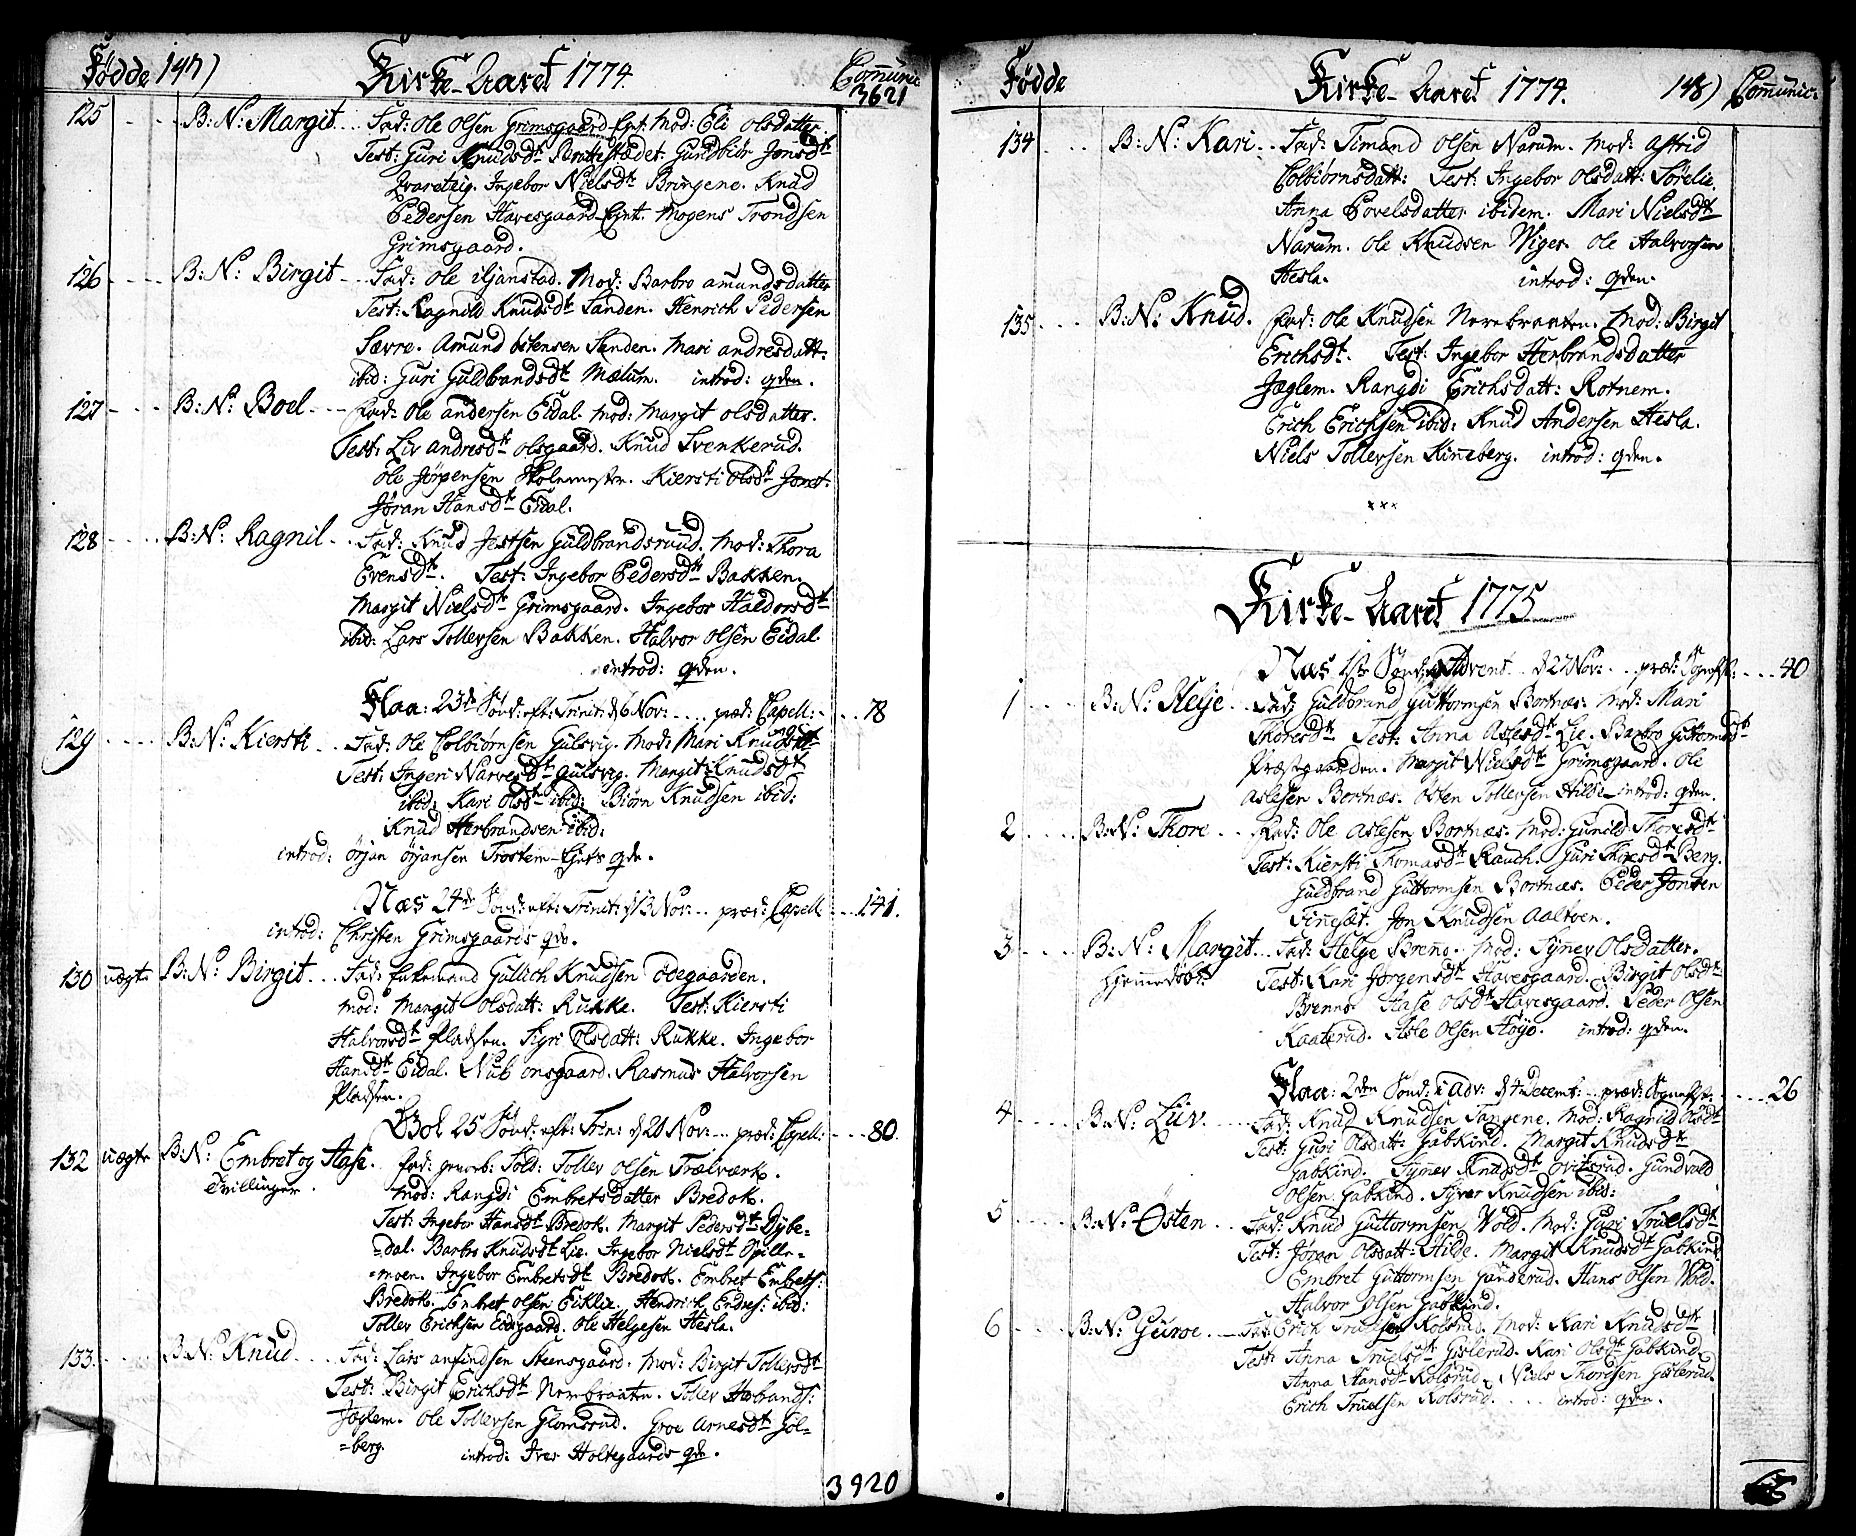 Fødde 147) Kirke-Aaret 1774. Communic
3621
125 B:N: Margit Fad: Ole Olsen Grimsgaard Ejnt: Mod: Eli Olsdatter.
Test: Guri Knudsdt Gundbiør Jonsdt
Ingebor Nielsdt Bringene. Knud
Pedersen Havesgaard Ejnt. Mogens Trondsen
Grimsgaard.
126 B:N: Birgit Fad: Ole Mod: Barbro Amundsdatter
Test: Ragnild Knudsdt Sanden. Henrich Pedersen
Sævre. Amund Østensen Sanden. Mari Andresdatt:
ibid: Guri Guldbrandsdt Mælum. introd: qden.
127 B:N: Boel Fad: Ole Andersen Eidal. Mod: Margit Olsdatter.
Test: Liv Andresdt Olsgaard. Knud Svenkerud.
Ole Jørgensen Skolemester. Kiersti Olsdt
Jøran Hansdt Eidal.
128 B:N: Ragnil Fad: Knud Guldbrandsruud. Mod: Thora
Evensdt. Test: Ingebor Pedersdt Bakken.
Margit Nielsdt Grimsgaard. Ingebor Haldorsdt
ibid: Lars Tollersen Bakken. Halvor Olsen Eidal.
introd: qden.
Flaa: 23de Sønd: eft: Trinit: d 6 Nov: præd: Capell: 78
129 B:N: Kiersti Fad: Ole Colbiørnsen Gulsvig. Mod: Mari Knudsdt
Test: Ingeri Narvesdt Gulsvig. Margit Knudsdt
ibid: Kari Olsdt ibid: Biørn Knudsen ibid:
Knud Herbrandsen ibid:
introd: Ørjan Ørjansen Trostem Ejnts qde.
Næs 24de Sønd: eft: Trinit: d 13 Nov: præd: Capell: 141.
introd: Christen Grimsgaards qde.
130 uægte B:N: Birgit Fad: Gullich Knudsen Ødegaarden.
Mod: Margit Olsdatt: Rukke. Test: Kiersti
Halvorsdt Pladsen. Sigri Olsdatt: Rukke. Ingebor
Hansdt Eidal. Nub Onsgaard. Rasmus Halvorsen
Pladsen.
25 Sønd: eft: Trin: d 20 Nov: præd: Capell: 80.
132 uægte B:N: Embret og Aase. Fad: Sold: Tollev Olsen Trælværk.
Tvillinger. Mod: Rangdi Embretsdatter Bredok.
Test: Ingebor Hansdt Bredok. Margit Pedersdt Dybe=
=dal. Barbro Knudsdt Lie. Ingebor Nielsdt Spille=
=moen. Ingebor Embretsdt Bredok. Embret Embrets:
Bredok. Embret Olsen Eiklie. Hendrich Endres: ibid:
Tollev Erichsen Ole Helgesen Hesla.
133. B:N: Knud Fad: Lars Anfindsen Steensgaard. Mod: Birgit Tollersdt
Test: Birgit Erichsdt Nerebraate. Tollev Herbrands:
Jøglem. Ole Tollersen Glomsrud. Groe Arnesdt Gol=
=berg. introd: Iver Holtegaards qde.
3920
Fødde Kirke-Aaret 1774. 148) Communic:
134 B:N: Kari Fad: Timand Olsen Narum. Mod: Astrid
Colbiørnsdatt: Test: Ingebor Olsdatt: Sørelie.
Anna Povelsdatter ibidem. Mari Nielsdt
Narum. Ole Knudsen Wiger. Ole Halvorsen
Hesla. introd: qden.
135 B:N: Knud. Fad: Ole Knudsen Nerebraaten. Mod: Birgit
Erichsdt. Test: Ingebor Herbrandsdatter
Jøglem. Rangdi Erichsdatt: Rotnem.
Erich Erichsen ibid: Knud Andersen Hesla.
Niels Tollersen Kinneberg. introd: qden.
×××
Kirke-Aaret 1775
Næs 1ste Sønd: Advent d 27 Nov: præd: 40
1 B:N: Helje Fad: Guldbrand Guttormsen Bortnæs. Mod: Mari
Thoresdt Test: Anna Aslesdt Lie. Barbro Guttormsdt
Præstgaarden. Margit Nielsdt Grimsgaard. Ole
Aslesen Bortnæs. Østen Tollersen Hilde introd: qden.
2 B:N: Thore Fad: Ole Aslesen Bortnæs. Mod: Gunild Thoresdt
Test: Kiersti Thomasdt Rauch. Guri Thoresdt Berg.
Guldbrand Guttormsen Bortnæs. Peder Jonsen
Finnesæt. Jon Knudsen Aaltoen.
3 B:N: Margit Fad: Helge Brenno. Mod: Syner Olsdatter.
hjemmedøbt Test: Kari Jørgensdt Havesgaard. Birgit Olsdt
Brenno Aase Olsdt Havesgaard. Peder Olsen
Kaaterud. Asle Olsen Høyo. introd: qden.
Flaa: 2den Sønd: i Adv: d 4 Decemt: præd: 26
4 B:N: Liv Fad: Knud Knudsen Tangene. Mod: Ragnild Olsdt
Test: Guri Olsdatt: Gabkind. Margit Knudsdt
Gabkind. Syner Knudsdt Gundvald
Olsen Gabkind. Syver Knudsen ibid:
5 B:N: Østen Fad: Knud Guttormsen Vold. Mod: Guri Truelsdt
Test: Jøran Olsdatt: Hilde. Margit Knudsdt Gabkind
Embret Guttormsen Gunderud. Hans Olsen Vold.
Halvor Olsen Gabkind.
6 B:N: Guroe Fad: Erich Truelsen Kolsrud. Mod: Kari Knudsdt
Test: Anna Truelsdt Gislerud. Kari Olsdt Gabkind.
Anna Hansdt Kolsrud. Niels Thoresen Gislerud
Erich Truelsen Kolsrud. introd: qden.
66